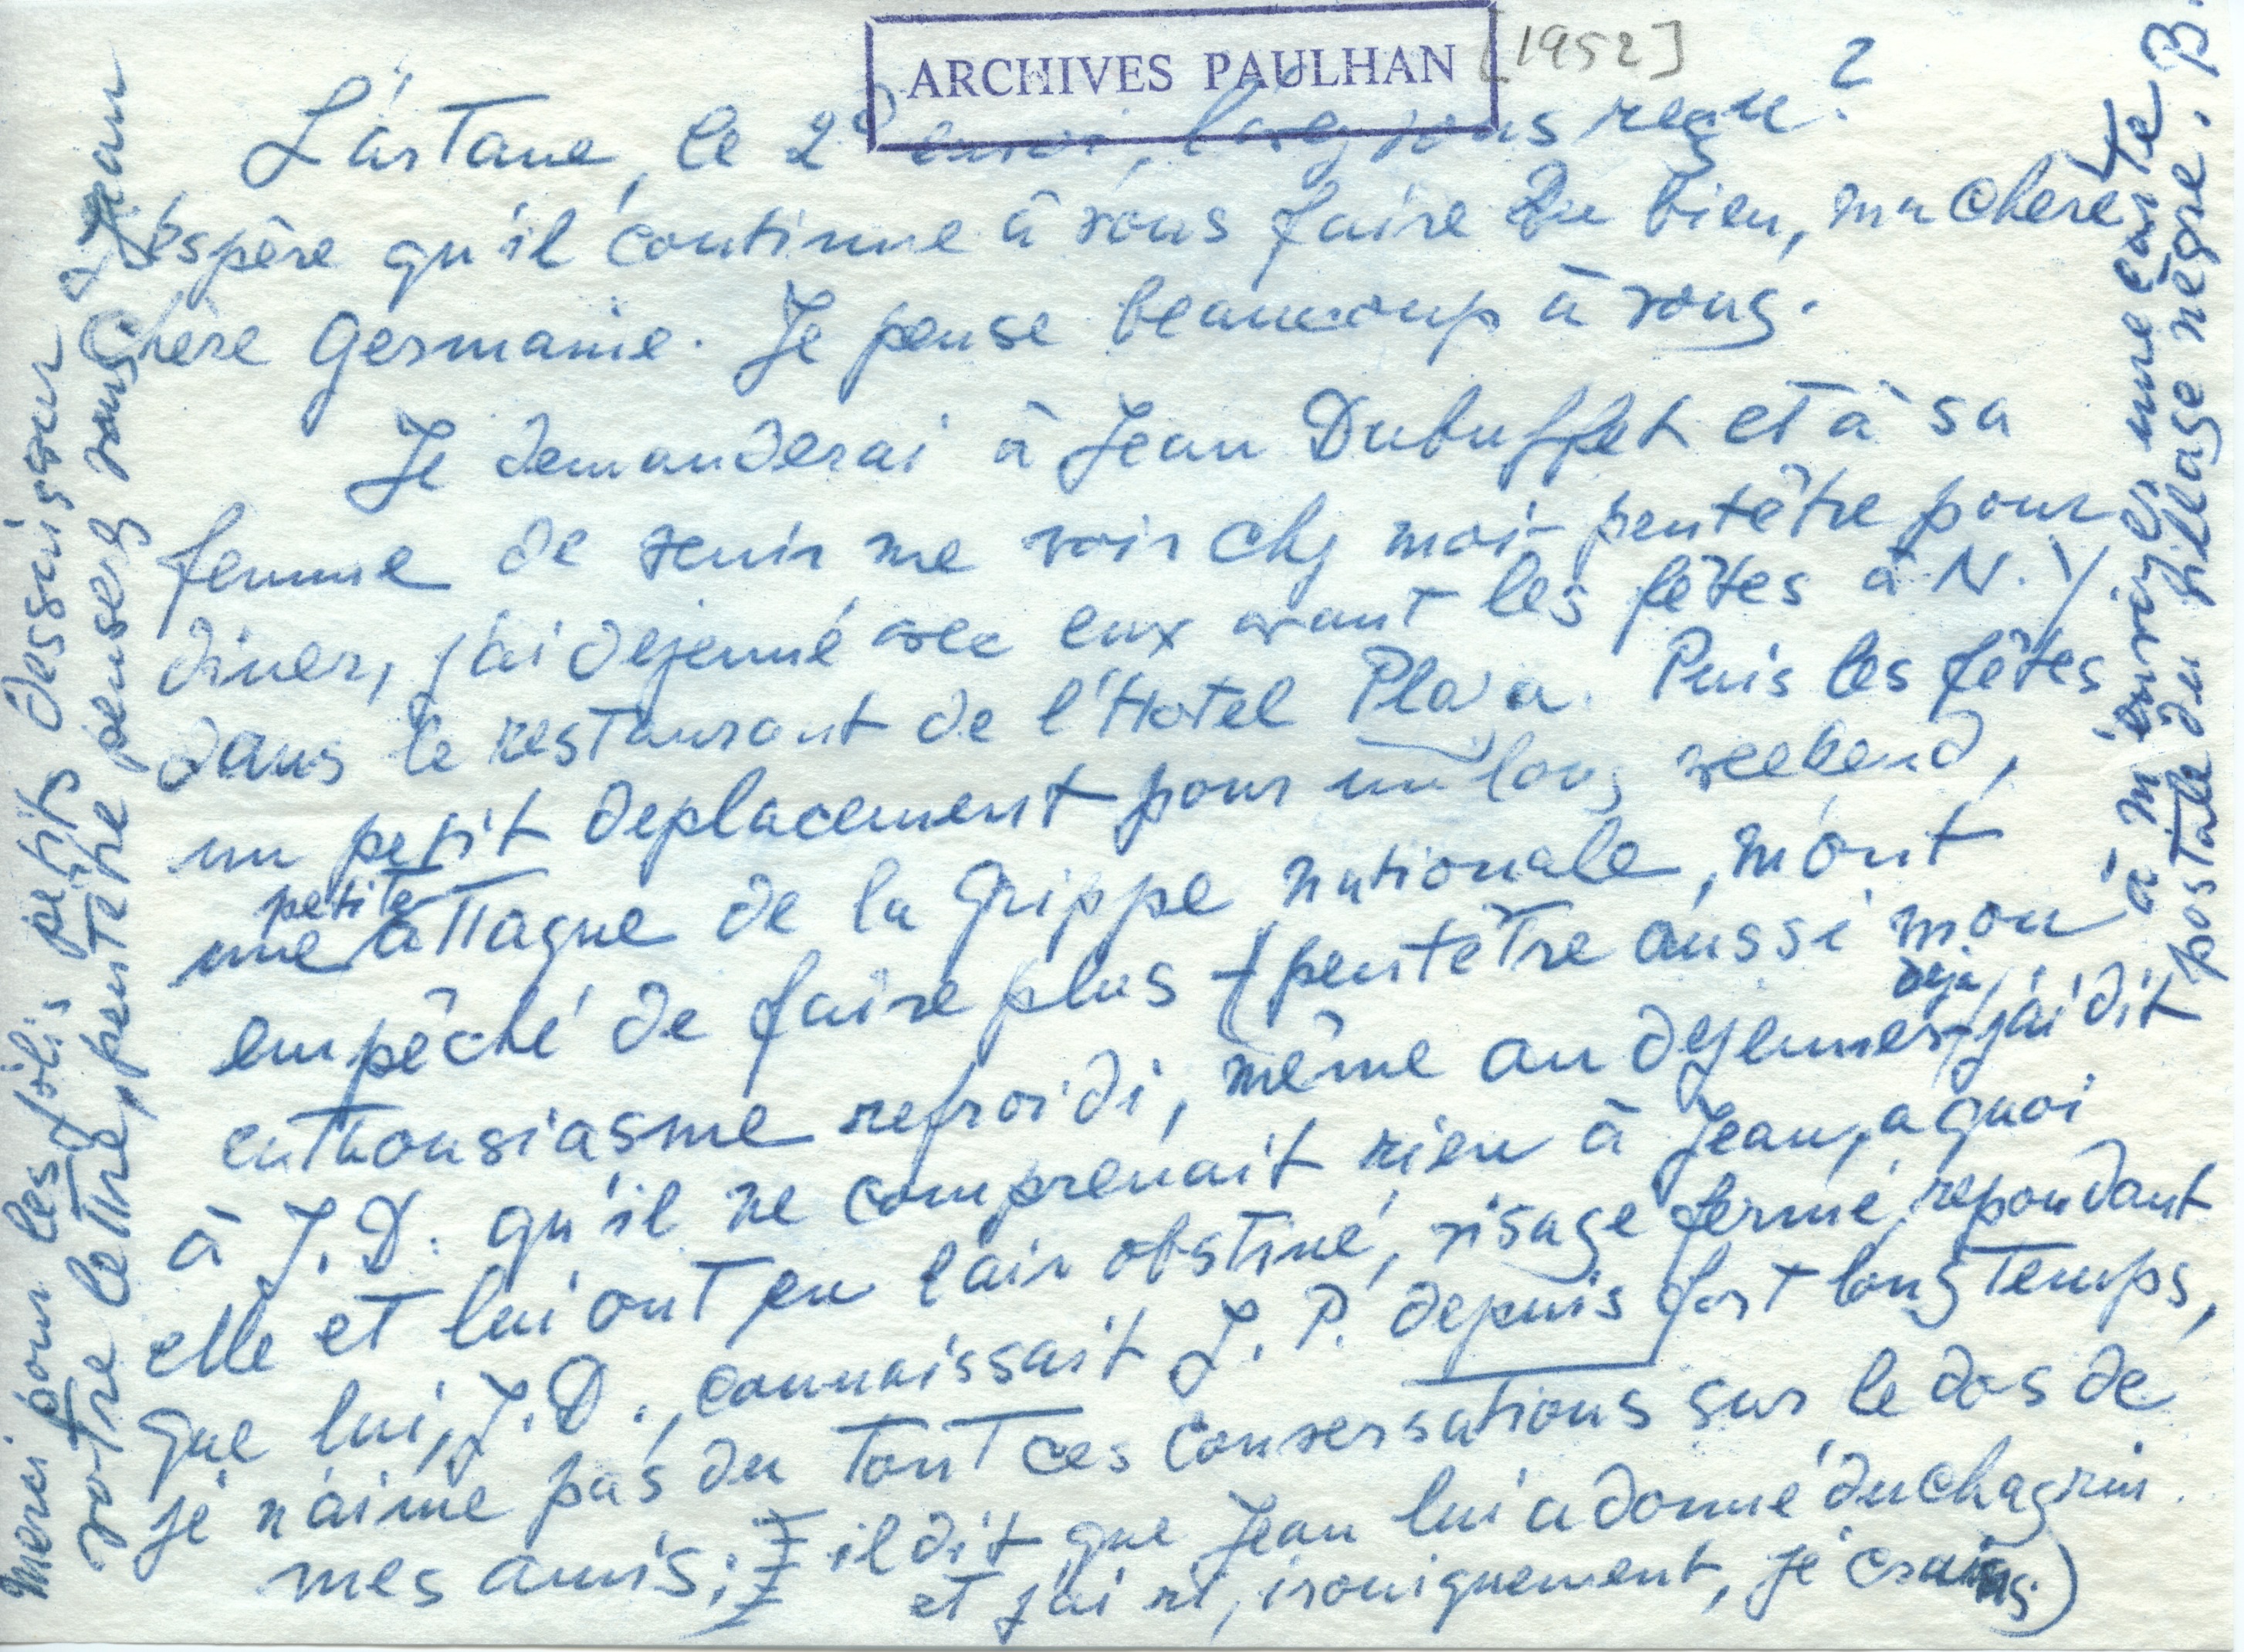 ARCHIVES PAULHAN
[1952]
2
L'artane, le 2e envoi, l'avez vous reçu?
J'espère qu'il continue à vous faire du bien, ma chère
chère Germaine. Je pense beaucoup à vous.
Je demanderai à Jean Dubuffet et à sa
femme de venir me voir chez moi - peutêtre pour
diner, j'ai dejeuné avec eux avant les fêtes à N.Y
dans le restaurant de l'Hotel Plaza. Puis les fêtes
un petit deplacement pour un long weekend,
une petite attaque de la Grippe nationale, m'ont
empêché de faire plus (peutêtre aussi mon
enthousiasme refroidi, même au dejeuner déjà, j'ai dit
à J.D. qu'il ne comprenait rien à Jean, a quoi
elle et lui ont eu l'air obstiné, visage fermé, repondant
que lui, J.D., connaissait J.P. depuis fort longtemps,
je n'aime pas du tout ces conversations sur le dos de
mes amis; il dit que Jean lui a donné du chagrin.
et j'ai ri, ironiquement, je crains)
Merci pour les jolis petits dessins sur
votre lettre, peutêtre penserez vous & Jean
à m'envoyer une carte
postale du village nègre. B.